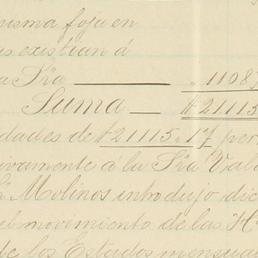 misma foja en
us existian á
a Sra — " 11087
Suma — $21115
dades de $21115.17 per
ivamente á la Sra Val
Molinos introdujo dic
el movimiento de las H
de los Estados mensua